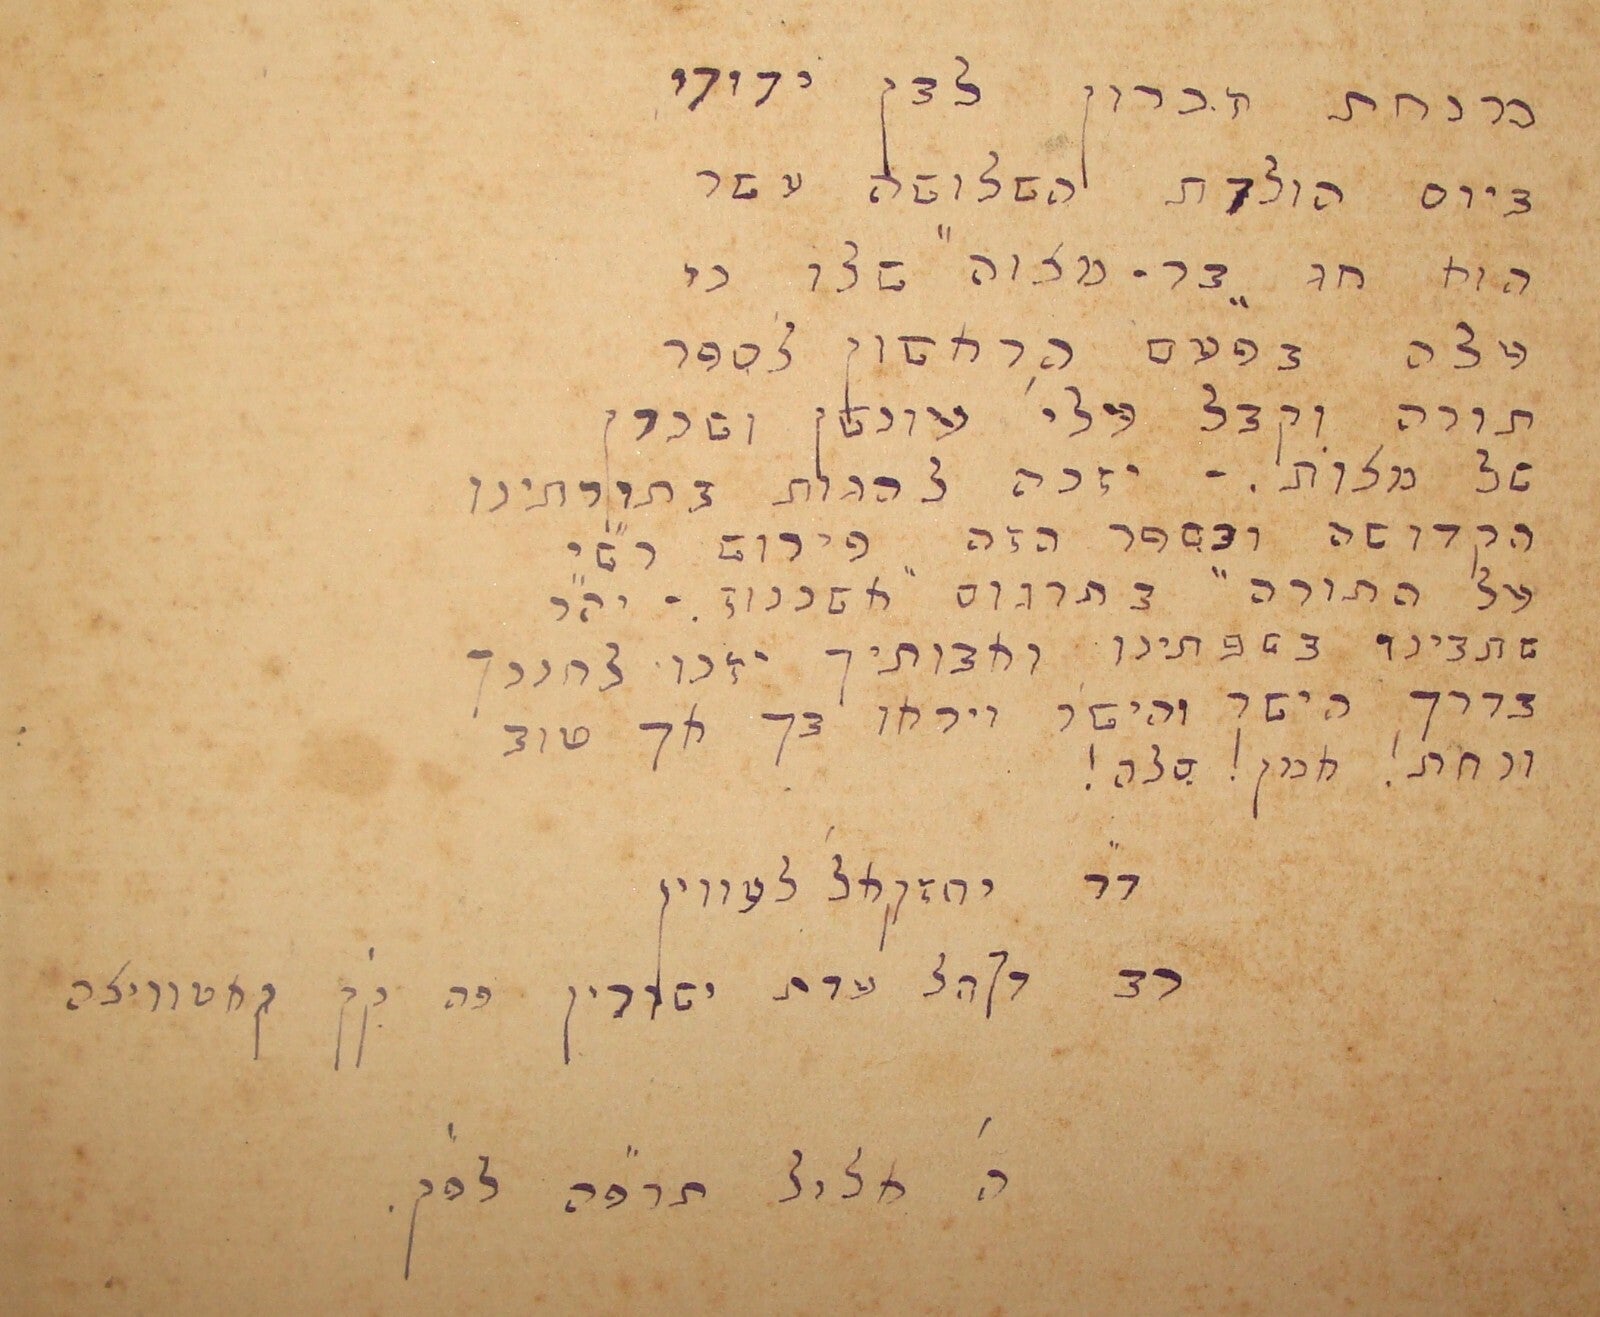 כרנחת זכרון לבן ידידי
ביום הולדת השלושה עשר
הוא חג "בר-מצוה" שלו כי
עלה בפעם הראשון לספר
תורה וקבל עלי' עונשן ושכרן
של מצות. - יזכה להגות בתורתינו
הקדושה ובספר הזה פירוש רש"י
על התורה" בתרגום "אשכנוז. - יה"ר
שתבינו בשפתינו ואבותיך יזכו לחנכך
בדרך הישר והישר ויראו בך אך טוב
ונחת! אמן! סלה!
ד"ר יחזקאל לעווין
רב דקהל עדת ישורין פה ק"ק קאטוויצה
ה' אלול תרפ"ה לפ"ק.